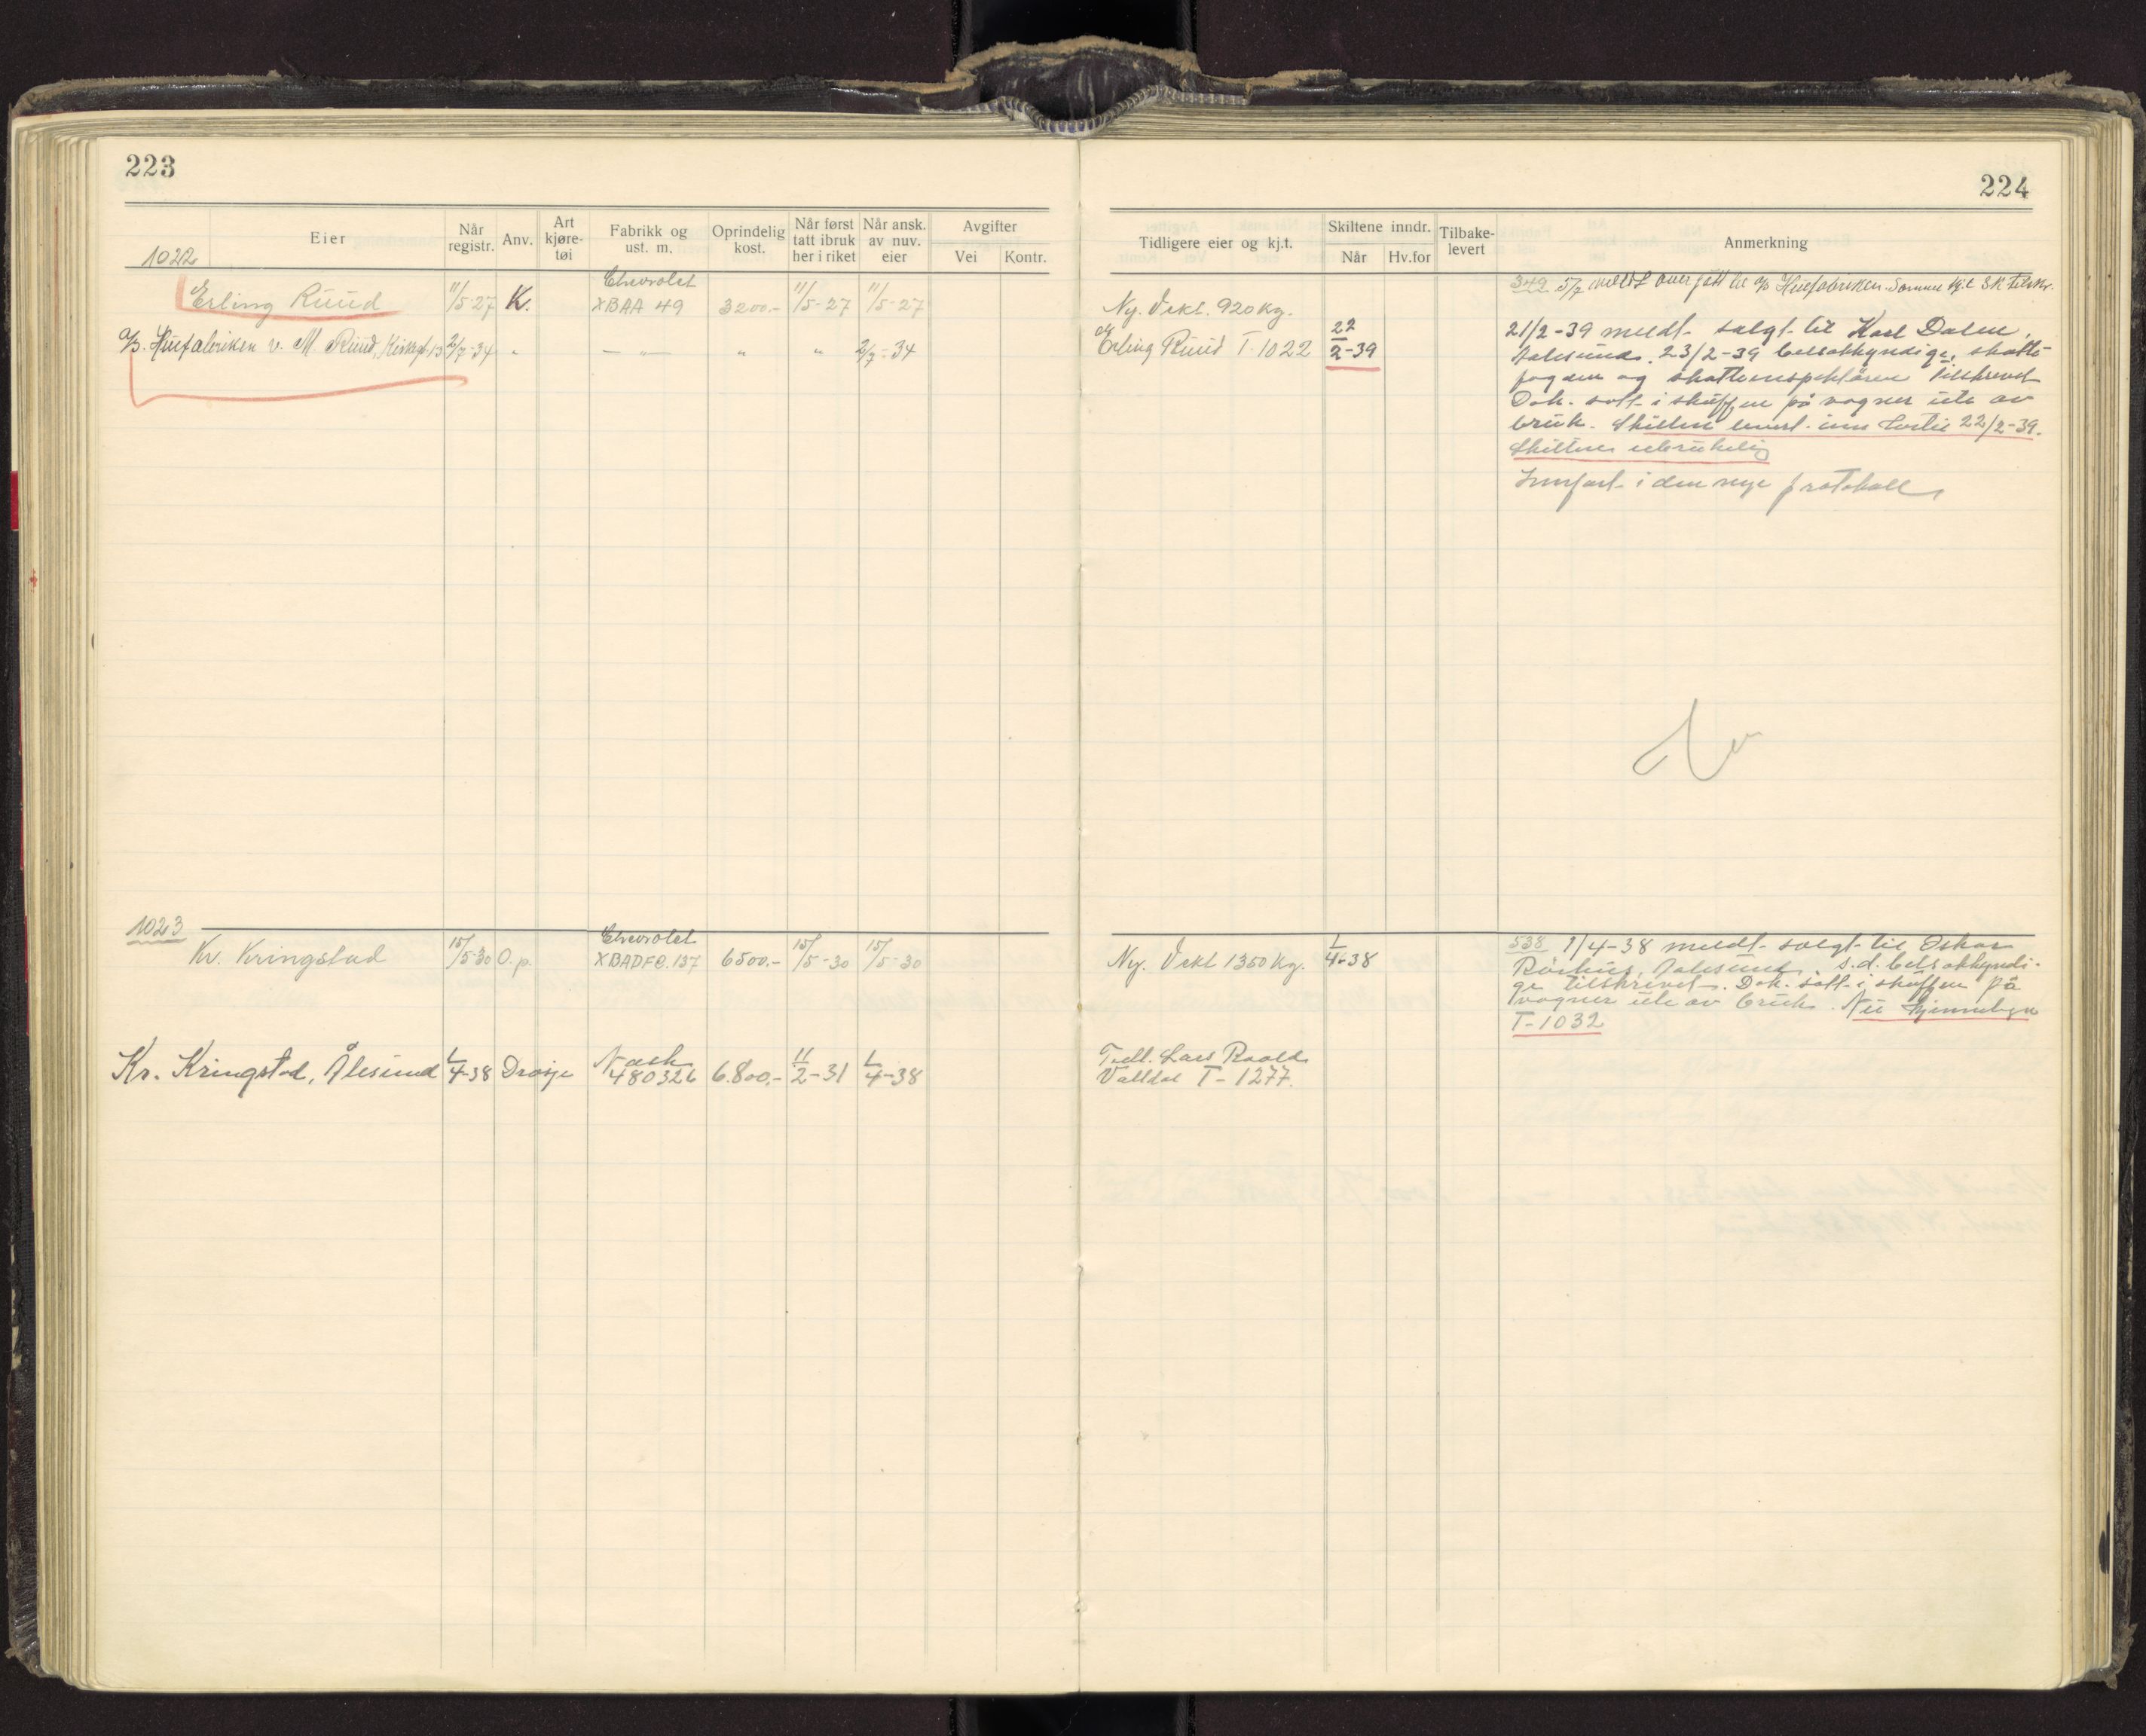 223
224
Eier
Når registr.
Anv.
Art kjøre-tøi
Fabrikk og ust. m.
Oprindelig kost.
Når først tatt ibruk her i riket
Når ansk. av nuv. eier
Avgifter
Vei
Kontr.
Tidligere eier og kj.t.
Skiltene inndr.
Når
Hv.for
Tilbake-levert
Anmerkning
1022
Erling Ruud 11/5-27 K. Chevrolet XBAA 49 3200.- 11/5-27 11/5-27
Ny. Vekt. 920 kg.
349 5/7 meldt overført til A/S Huefabriken. Samme kj.t. SK tilskr.
A/S. Huefabriken v. M. Ruud, 13 2/7-34 " — " — " " 2/7-34
Erling Ruud T-1022 22/2-39
21/2-39 meldt solgt til Karl Dalen,
Aalesund. 23/2-39 bilsakkyndige, skatte-
fogden og skatteinspektøren tilskrevet
Dok. satt i skuffen på vogner ute av
bruk. Skiltene levert inn hertil 22/2-39.
Skiltene ubrukelig
Innført i den nye protokoll
1023
Kr. Kringstad 15/5-30 O.p. Chevrolet XBADFC.137 6500.- 15/5-30 15/5-30
Ny. Vekt 1350 kg. 1/4-38
538 1/4-38 meldt solgt til Oskar
Aalesund. s.d. bilsakkyndi-
ge tilskrevet. Dok. satt i skuffen på
vogner ute av bruk. Nu kjennetegn
T-1032
Kr. Kringstad, Ålesund 1/4-38 Drosje Nash 480326 6.800,- 11/2-31 1/4-38
Tidl. Lars
Valldal T-1277.